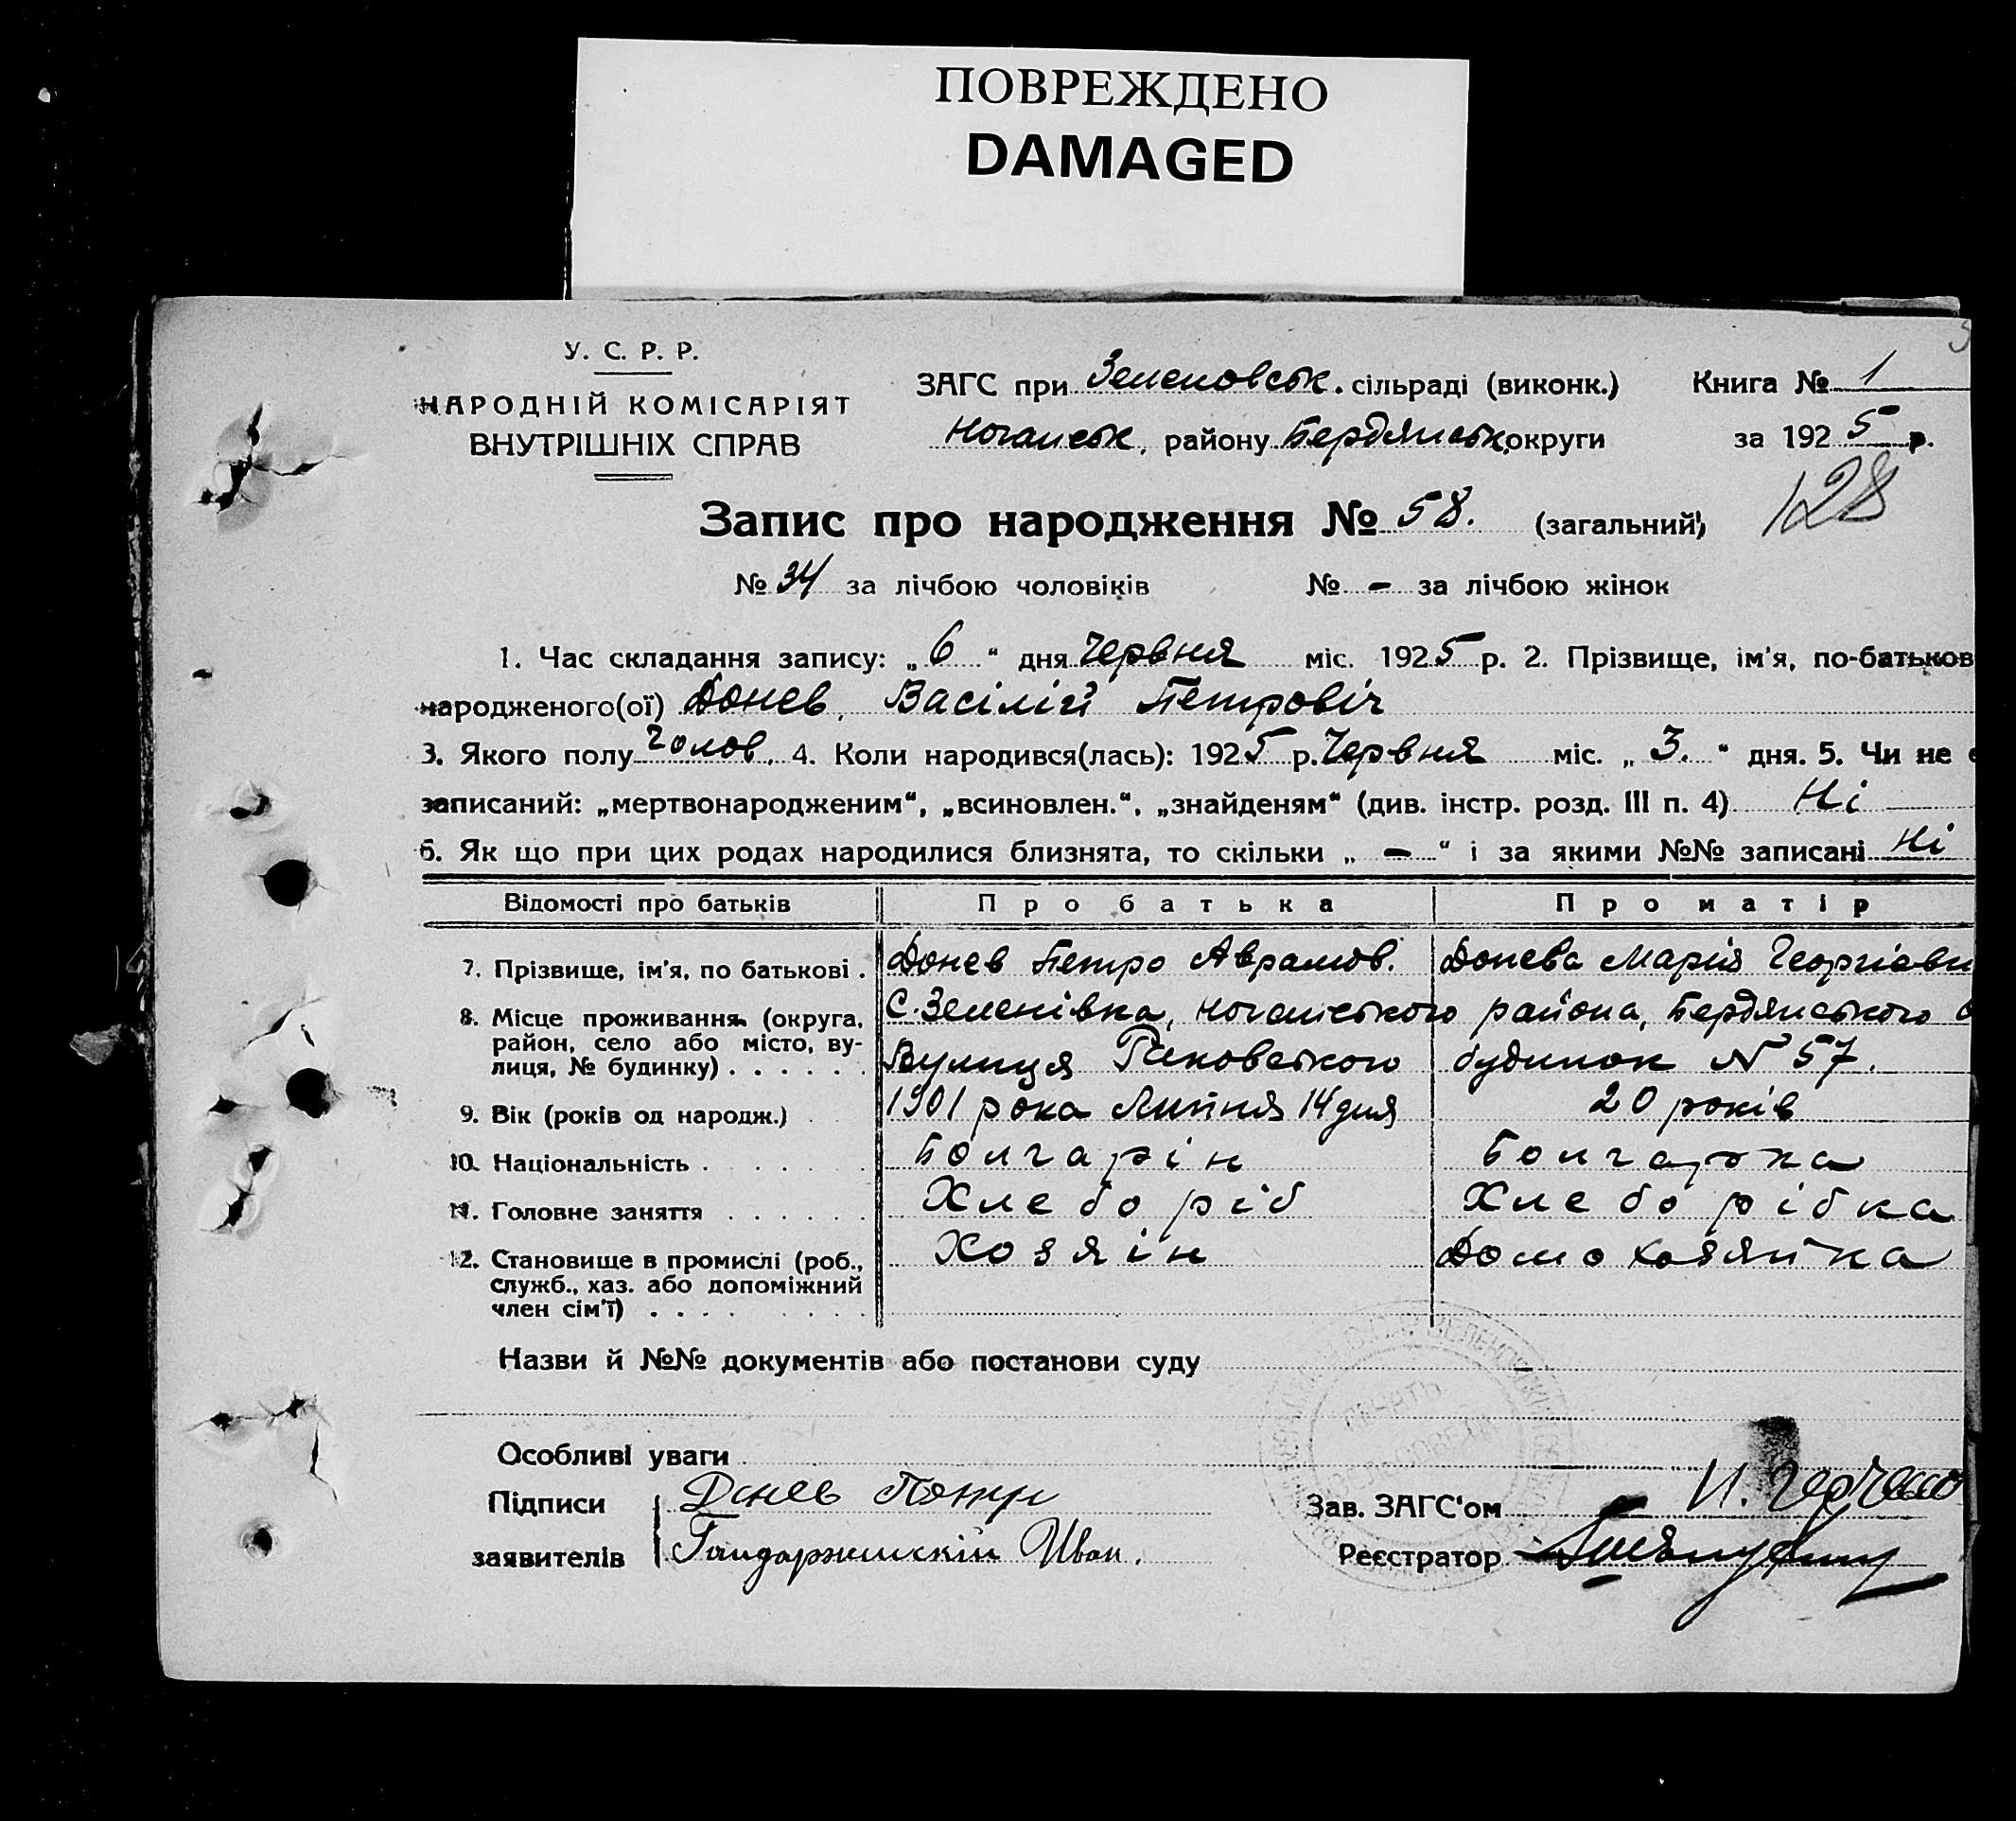 ПОВРЕЖДЕНО
DAMAGED
У. С. Р. Р.
НАРОДНІЙ КОМІСАРІЯТ
ВНУТРІШНІХ СПРАВ
ЗАГС при Зеленовськ. сільраді (виконк.)
Ногайськ. району Бердянськ. округи
Книга № 1
за 1925 р.
128
Запис про народження № 58. (загальний)
№ 34 за лічбою чоловіків № - за лічбою жінок
1. Час складання запису: „6“ дня Червня міс. 1925 р. 2. Прізвище, ім'я, по-батьков
народженого(ої) Донев, Васілій Петровіч
3. Якого полу Чолов. 4. Коли народився(лась): 1925 р. Червня міс. „3.“ дня. 5. Чи не є
записаний: „мертвонародженим“, „всиновлен.“, „знайденям“ (див. інстр. розд. III п. 4) Ні
6. Як що при цих родах народилися близнята, то скільки „-“ і за якими №№ записані Ні
Відомості про батьків Про батька Про матір
7. Прізвище, ім'я, по батькові . Донев Петро Аврамов. Донева Марія Георгіевн
8. Місце проживання (округа, район, село або місто, вулиця, № будинку) . . . . . . С. Зеленівка, Ногайського района, Бердянського о
Вулиця Раковського будинок N 57.
9. Вік (років од народж.) . 1901 рока Липня 14 дня 20 років
10. Національність . . . . . . Болгарін Болгарка
11. Головне заняття . . . . . . Хлеборіб Хлеборібка
12. Становище в промислі (роб., служб., хаз. або допоміжний член сім'ї) . . . . . . . . Хозяін Домохозяйка
Назви й №№ документів або постанови суду -
Особливі уваги
Підписи Донев Петр
заявителів Гайдаржийскій Иван.
Зав. ЗАГС'ом
Реєстратор
ПЕЧАТЬ